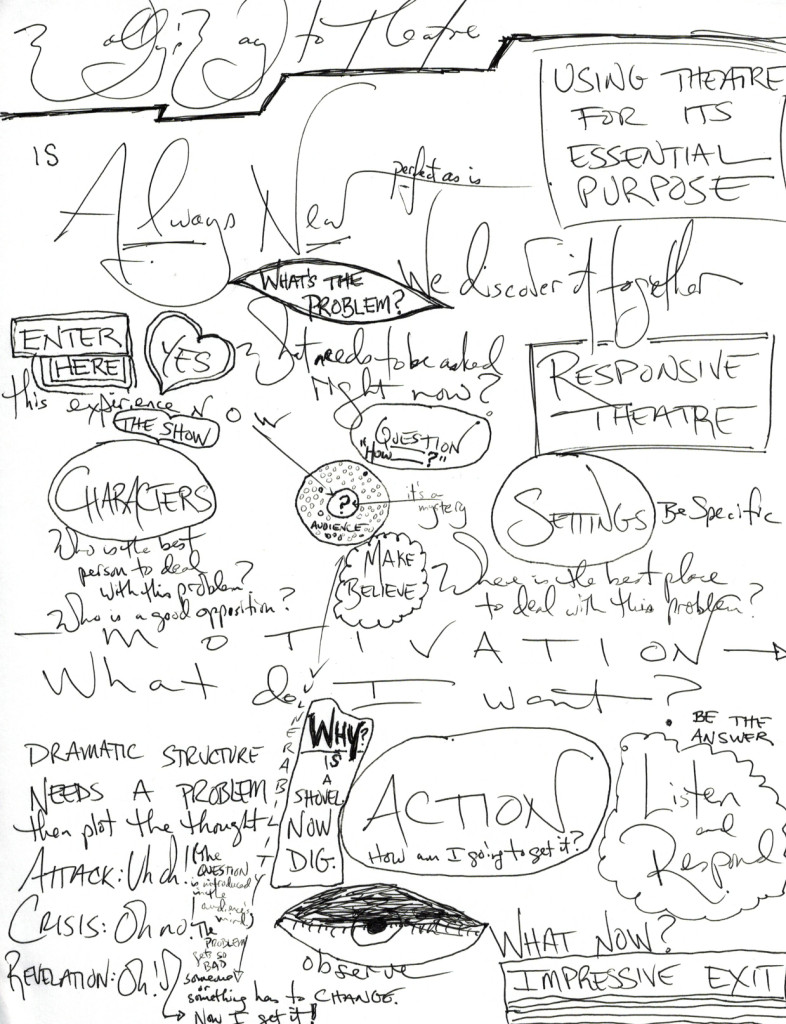 Wally's Way to Theatre
USING THEATRE
FOR ITS
ESSENTIAL
PURPOSE
IS
Always New
perfect as is
WHAT'S THE
PROBLEM?
We discover it together
ENTER
HERE
YES
What needs to be asked
right now?
RESPONSIVE
THEATRE
this experience NOW
THE SHOW
QUESTION
"HOW ___?"
CHARACTERS
?
AUDIENCE
it's a
mystery
SETTINGS
Be Specific
Who is the best
person to deal
with this problem?
Who is a good opposition?
MAKE
BELIEVE
Where is the best place
to deal with this problem?
MOTIVATION
What do I want?
VULNERABILITY
WHY?
IS
A
SHOVEL
NOW
DIG.
ACTION
How am I going to get it?
BE THE
ANSWER
Listen
and
Respond
DRAMATIC STRUCTURE
NEEDS A PROBLEM
then plot the thought
ATTACK: Uh oh!
(The
QUESTION
is introduced
in the
audience's
mind)
CRISIS: Oh no!
The
PROBLEM
gets so
BAD
someone
or
something has to CHANGE.
REVELATION: Oh!
Now I get it!
observe
WHAT NOW?
IMPRESSIVE EXIT